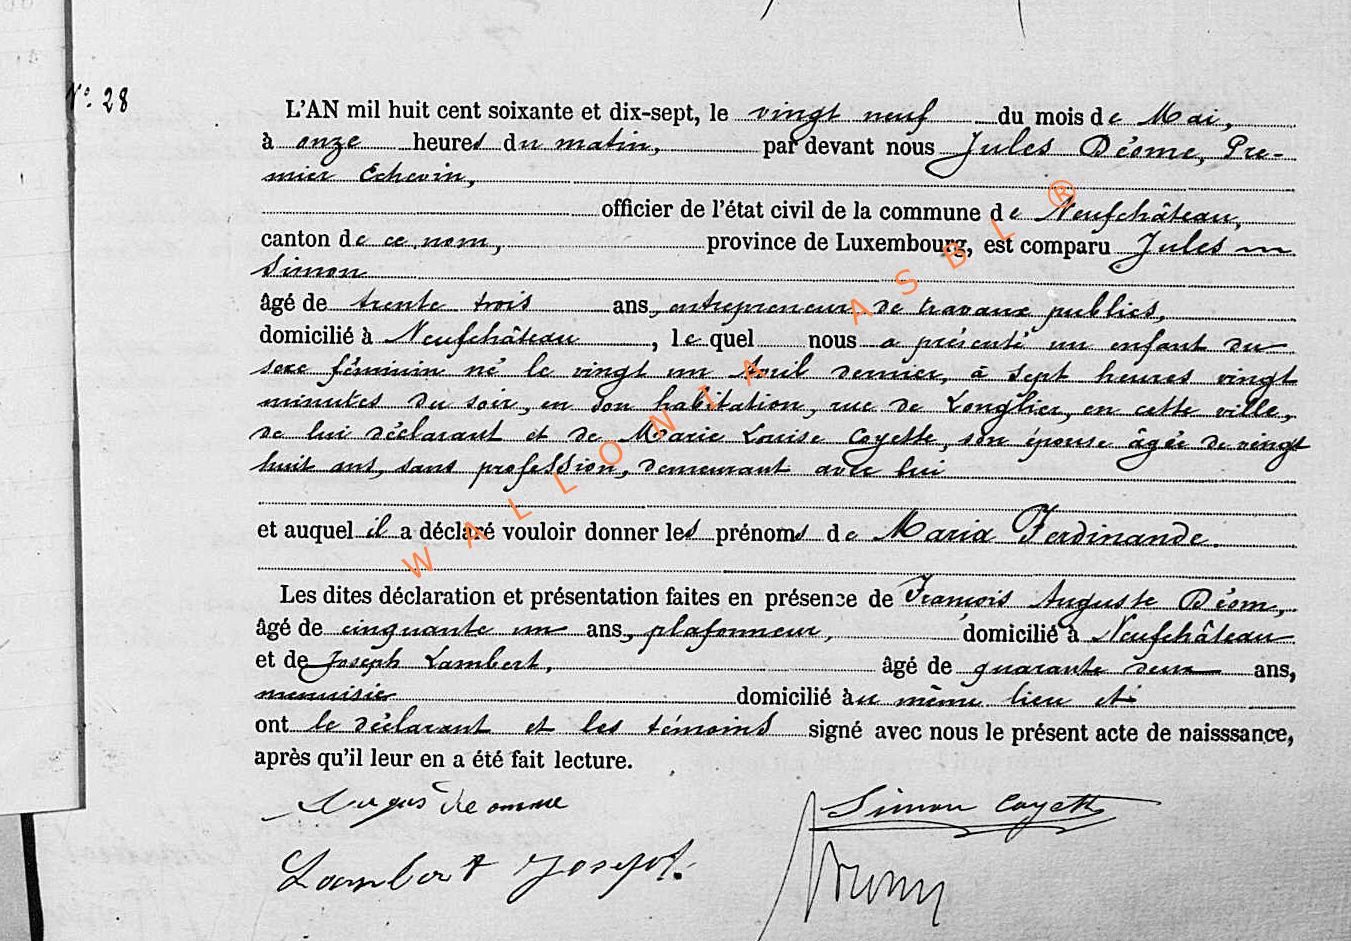 N° 28
L'AN mil huit cent soixante et dix-sept, le vingt neuf du mois de Mai,
à onze heures du matin, par devant nous Jules Déome, Pre-
mier Echevin,
officier de l'état civil de la commune de Neufchâteau,
canton de ce nom, province de Luxembourg, est comparu Jules
Simon
âgé de trente trois ans, entrepreneur de travaux publics,
domicilié à Neufchâteau, le quel nous a présenté un enfant du
sexe féminin né le vingt un Avril dernier, à sept heures vingt
minutes du soir, en son habitation, rue de Longlier, en cette ville,
de lui déclarant et de Marie Louise Coyette, son épouse âgée de vingt
huit ans, sans profession, demeurant avec lui
et auquel il a déclaré vouloir donner les prénoms de Maria Ferdinande.
Les dites déclaration et présentation faites en présence de François Auguste Déom,
âgé de cinquante un ans, plafonneur, domicilié à Neufchâteau
et de Joseph Lambert, âgé de quarante deux ans,
menuisier domicilié au même lieu et
ont le déclarant et les témoins signé avec nous le présent acte de naisssance,
après qu'il leur en a été fait lecture.
Simon Coyette
Lambert Joseph.
WALLONIA ASBL ®